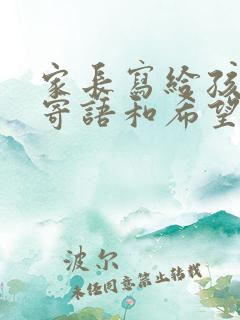 家長寫給孩
寄語和希望
波尔
未经同意禁止转载